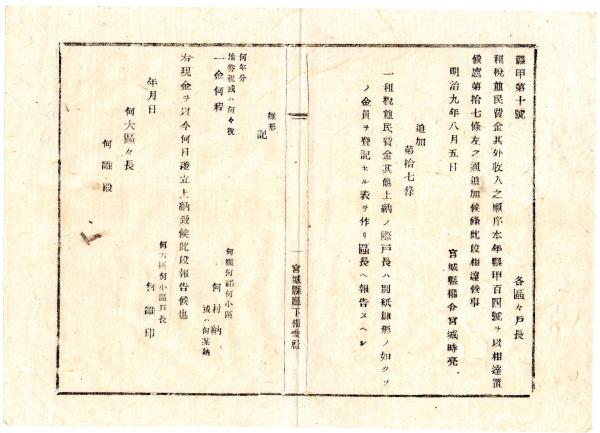 縣甲第十號
各區々戸長
租税並民費金其外收入之順序本年縣甲百四號ヲ以相達置
候處第拾七條左之通追加候條此段相達候事
明治九年八月五日
宮城縣權令宮城時亮
追加
第拾七條
一租税並民費金其他上納ノ際戸長ハ別紙雛形ノ如クソ
ノ金員ヲ登記セル表ヲ作リ區長ヘ報告スヘシ
宮城縣廳下相愛社
雛形
記
何年分
地券税或ハ何々税
一金何程
何國何郡何小區
何村納
或ハ何某納
右現金ヲ以今何日遂立上納致候此段報告候也
年月日
何大區何小區戸長
何誰印
何大區々長
何誰殿